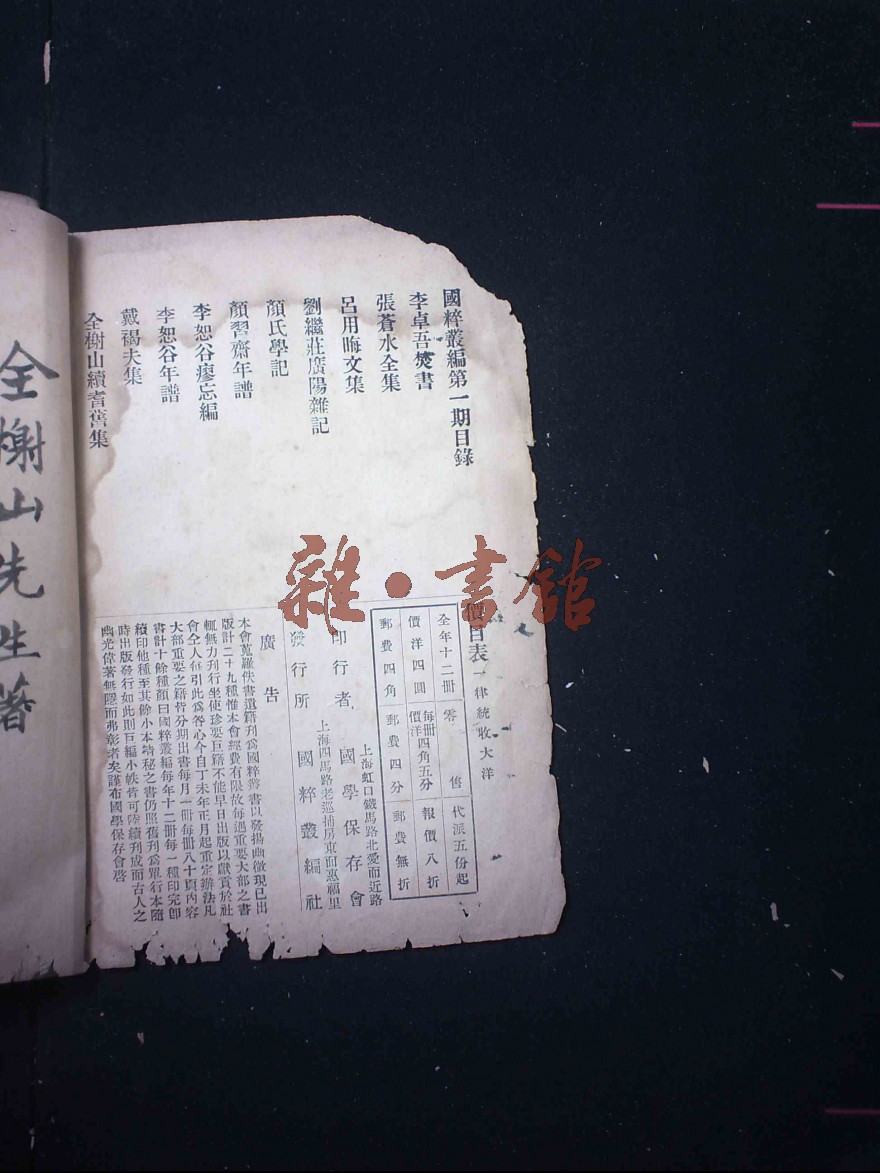 國粹叢編第一期目錄
李卓吾焚書
張蒼水全集
呂用晦文集
劉繼莊廣陽雜記
顏氏學記
顏習齋年譜
李恕谷瘳忘編
李恕谷年譜
戴褐夫集
全榭山續耆舊集
價目表 一律統收大洋
全年十二冊 零售 代派五份起
價洋四圓 每冊價洋四角五分 報價八折
郵費四角 郵費四分 郵費無折
上海虹口鐵馬路北愛而近路
印行者 國學保存會
上海四馬路老巡捕房東面惠福里
發行所 國粹叢編社
廣告
本會蒐羅佚書遺籍刊為國粹叢書以發揚幽微現已出
版計二十九種惟本會經費有限故每遇重要大部之書
輒無力刊行坐使珍要巨籍不能早日出版以獻貢於社
會仝人每引此為咎心今自丁未年正月起重定辦法凡
大部重要之籍皆分期出書每月一冊每冊八十頁內容
書計十餘種顏曰國粹叢編每年十二冊每一種印完卽
續印他種至其餘小本特秘之書仍照舊刊為單行本隨
時出版發行如此則巨編小帙皆可陸續刊成而古人之
幽光偉著無隱而弗彰者矣謹布國學保存會啓
全榭山先生著
雜·書館